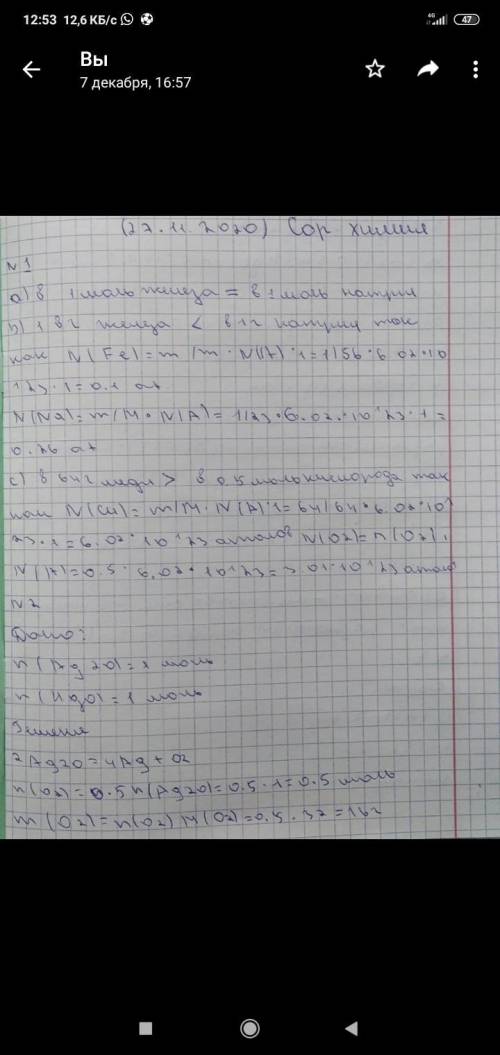 12:53 12,6 КБ/с 4G 47
Вы
7 декабря, 16:57
(27.11.2020) Сор химия
N1
a) в 1 моль железа = в 1 моль натрия
b) 1 в г железа < в 1г натрия так
как N(Fe)=m/m·N(A)·1=1/56·6.02·10
^23·1=0.1 ат
N(Na)=m/M·N(A)=1/23·6.02·10^23·1=
0.26 ат
c) в 64г меди > в 0.5 моль кислорода так
как N(Cu)=m/M·N(A)·1=64/64·6.02·10^
23·1=6.02·10^23 атомов N(O2)=n(O2)·
N(A)=0.5·6.02·10^23=3.01·10^23 атом
N2
Дано:
n(Ag2O)=1 моль
n(HgO)=1 моль
2Ag2O=4Ag+O2
n(O2)=0.5n(Ag2O)=0.5·1=0.5 моль
m(O2)=n(O2)M(O2)=0.5·32=16г